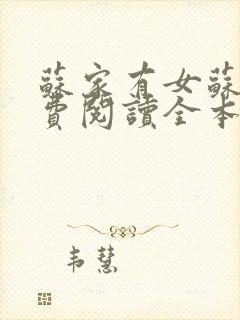 蘇家有女蘇
費閱讀全本
韦慧